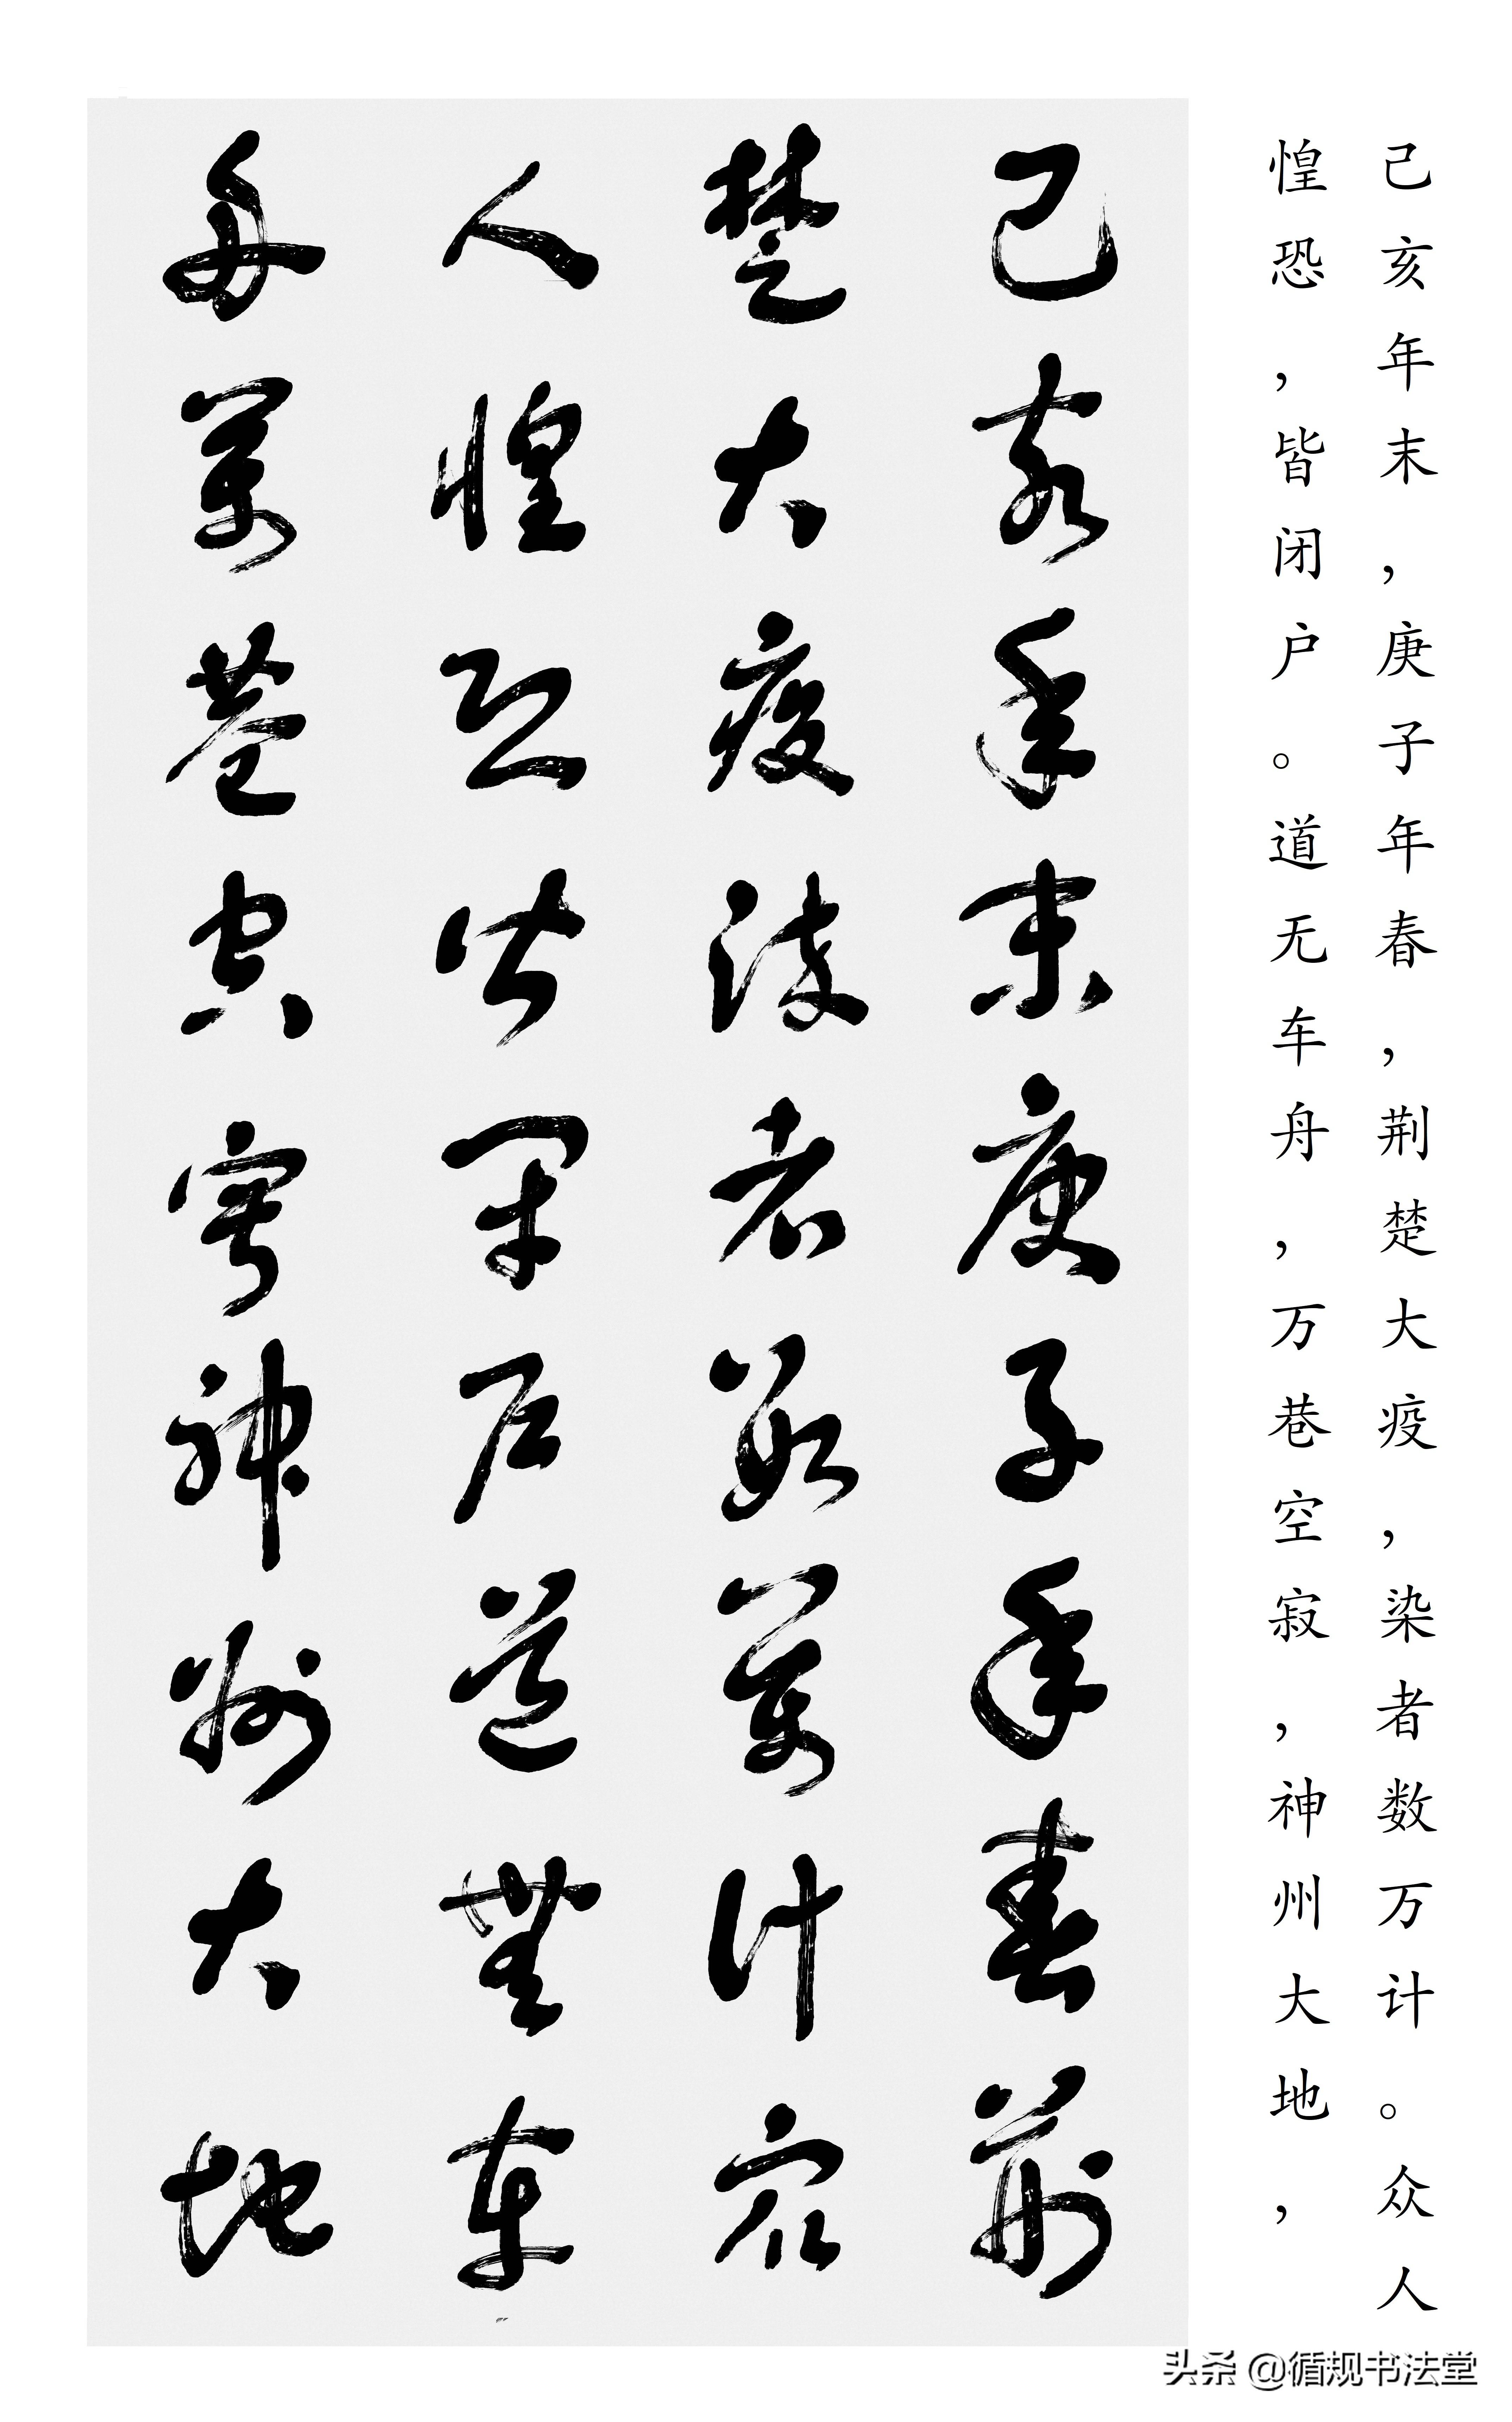 己亥年末，庚子年春，荆楚大疫，染者数万计。众人
惶恐，皆闭户。道无车舟，万巷空寂，神州大地，
己亥年末庚子年春荆
楚大疫染者数萬计众
人惶恐皆闭户道無车
舟萬巷空寂神州大地
头条 @循规书法堂